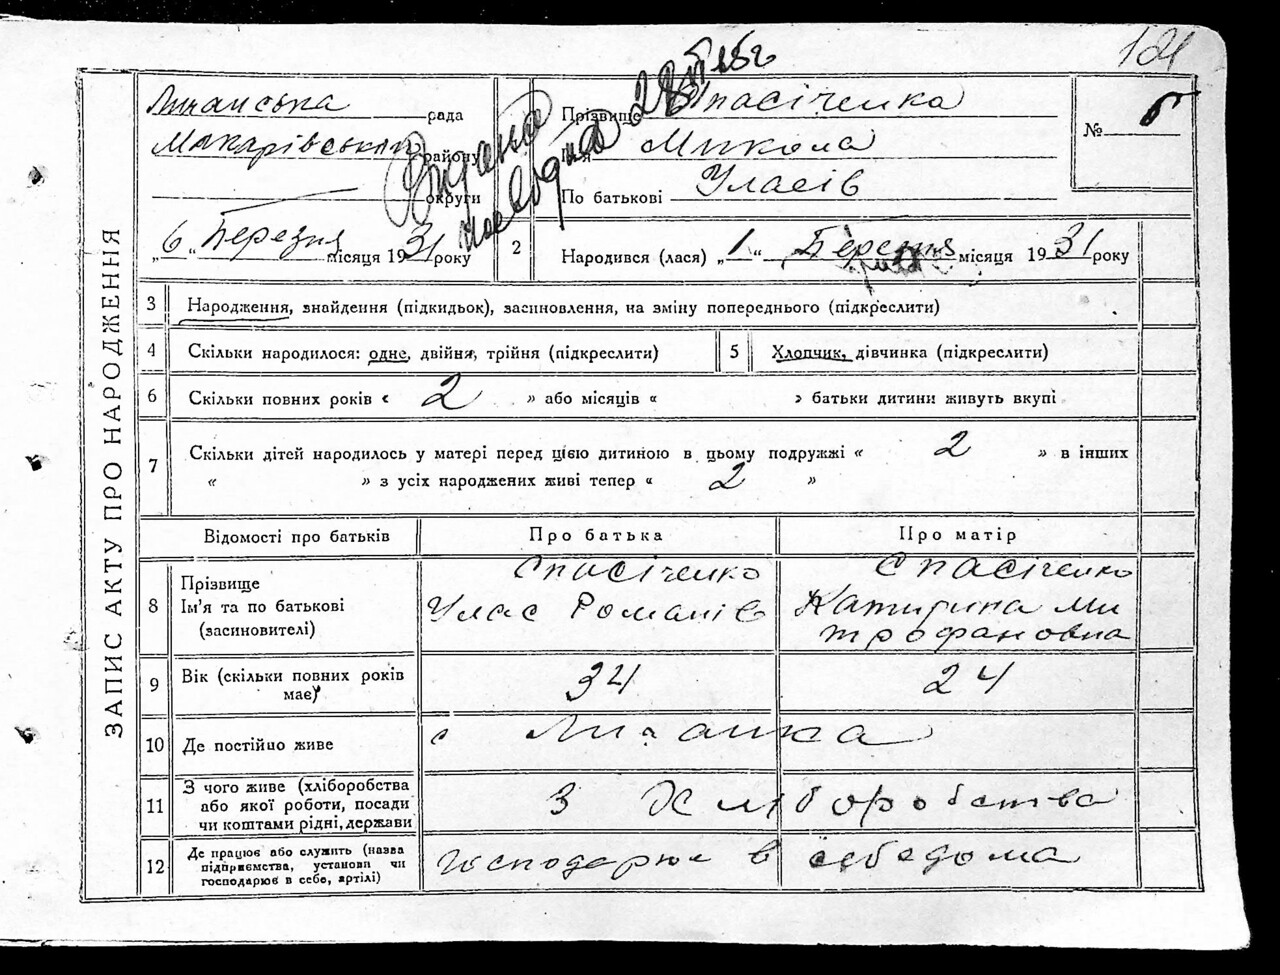 121
ЗАПИС АКТУ ПРО НАРОДЖЕННЯ
Липанська рада
Макарівський району
округи
„6“ Березня місяця 1931 року
Видана
28 VI 18г
1
Прізвище Спасіченко
Ім'я Микола
По батькові Уласів
№ 6
2
Народився (лася) „1“ Березня місяця 1931 року
3 Народження, знайдення (підкидьок), засиновлення, на зміну попереднього (підкреслити)
4 Скільки народилося: одне, двійня, трійня (підкреслити)
5 Хлопчик, дівчинка (підкреслити)
6 Скільки повних років « 2 » або місяців « » батьки дитини живуть вкупі
7 Скільки дітей народилось у матері перед цією дитиною в цьому подружжі « 2 » в інших
« » з усіх народжених живі тепер « 2 »
Відомості про батьків Про батька Про матір
8 Прізвище Ім'я та по батькові (засиновителі)
Спасіченко
Улас Романів
Спасіченко
Катирина Ми
трофановна
9 Вік (скільки повних років має) 34 24
10 Де постійно живе с Липанка
11 З чого живе (хліборобства або якої роботи, посади чи коштами рідні, держави
З хліборобства
12 Де працює або служить (назва підприємства, установи чи господарює в себе, артілі)
Господарює в себе дома